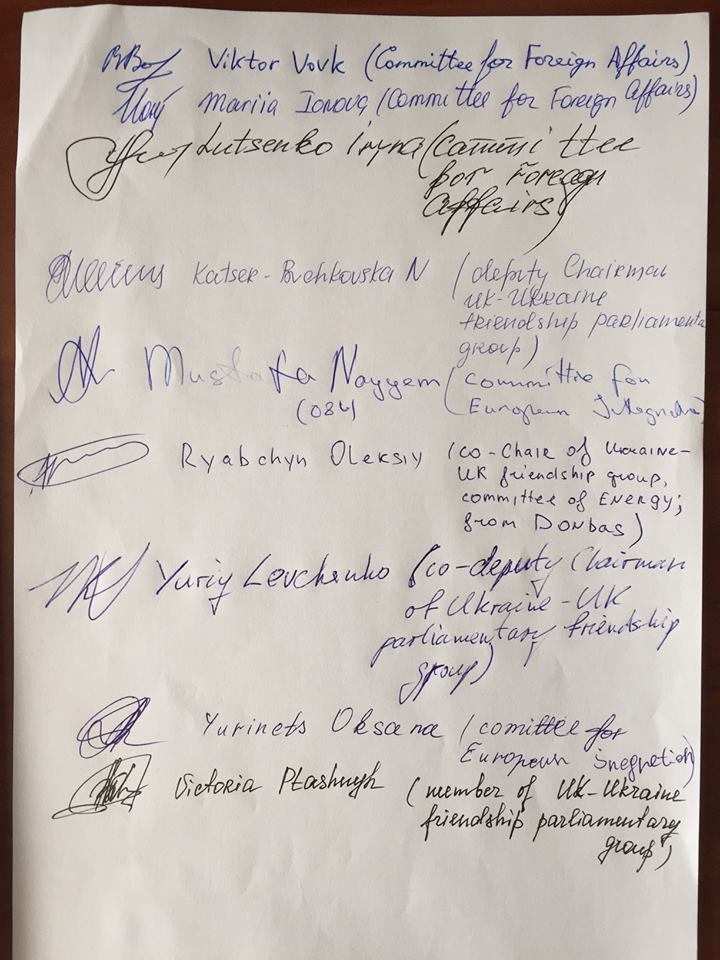 Viktor Vovk (Committee for Foreign Affairs)
Mariia Ionova (Committee for Foreign Affairs)
Lutsenko Iryna (Committee
for Foreign
Affairs)
Katser-Buchkovska N (deputy Chairman
UK-Ukraine
friendship parliamenta
group)
Mustafa Nayyem (committee for
(084) European Integration)
Ryabchyn Oleksiy (co-Chair of Ukraine-
UK friendship group,
committee of ENERGY;
from DONbas)
Yuriy Levchenko (co-deputy Chairman
of Ukraine-UK
parliamentary friendship
group)
Yurinets Oksana (comittee for
European Inegretion)
Victoria Ptashnyk (member of UK-Ukraine
friendship parliamentary
group)